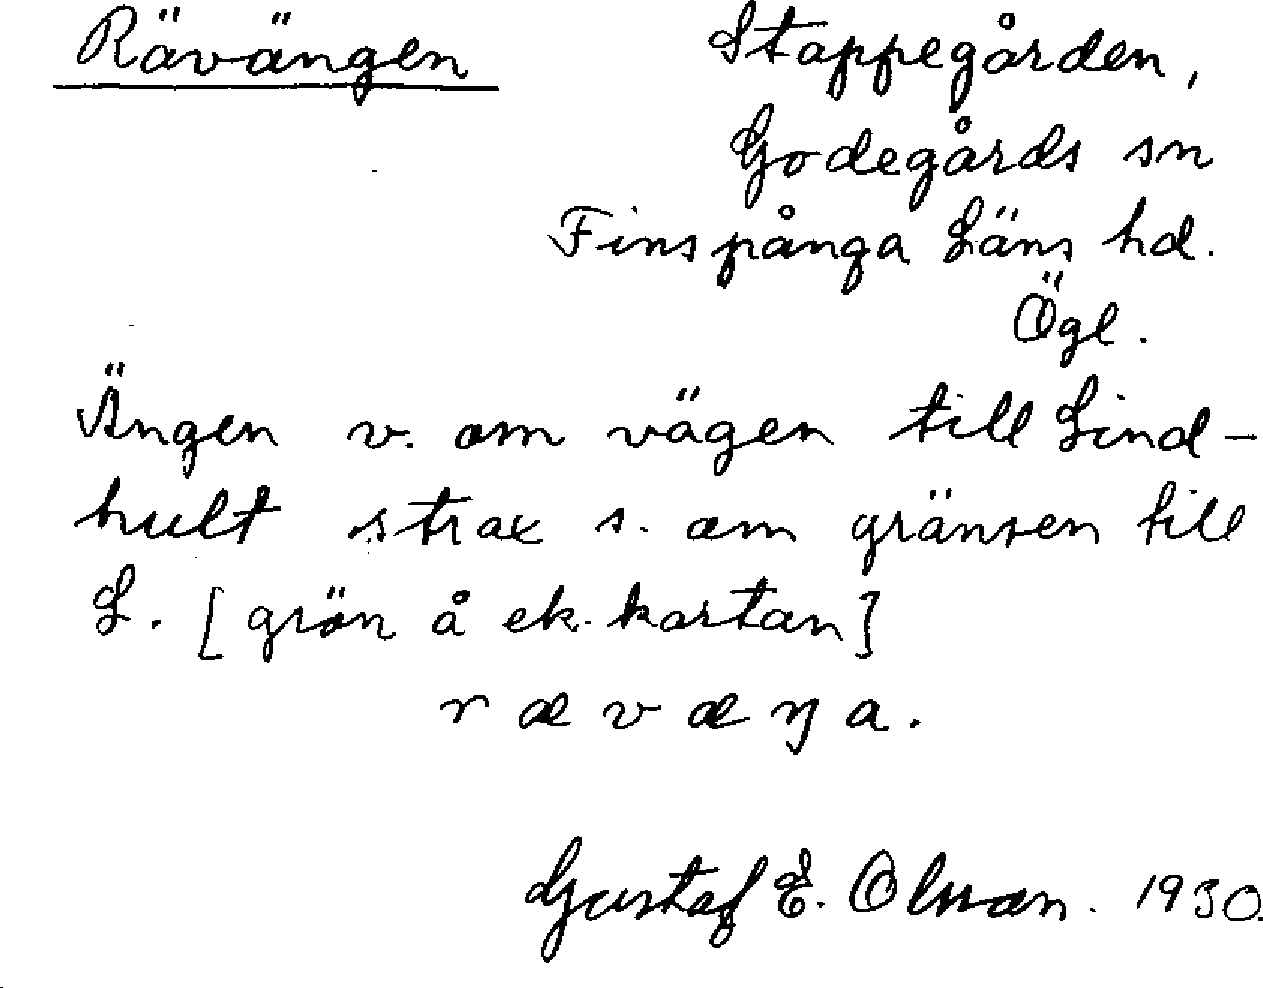 Rävängen
Stappegården,
Godegårds sn
Finspånga Läns hd.
Ögl.
Ängen v. om vägen till Lind-
hult strax s. om gränsen till
L. [grön å ek. kartan]
r æ v æ ŋ a.
Gustaf E. Olsson. 1930.